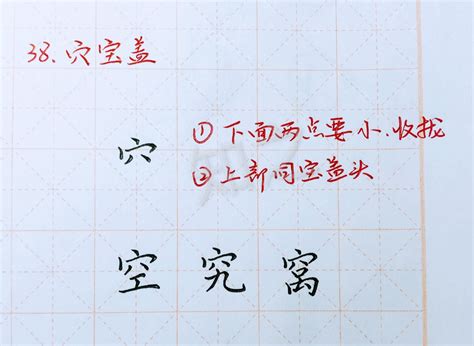 38.穴宝盖
穴
①下面两点要小.收拢
②上部同宝盖头
空究窝